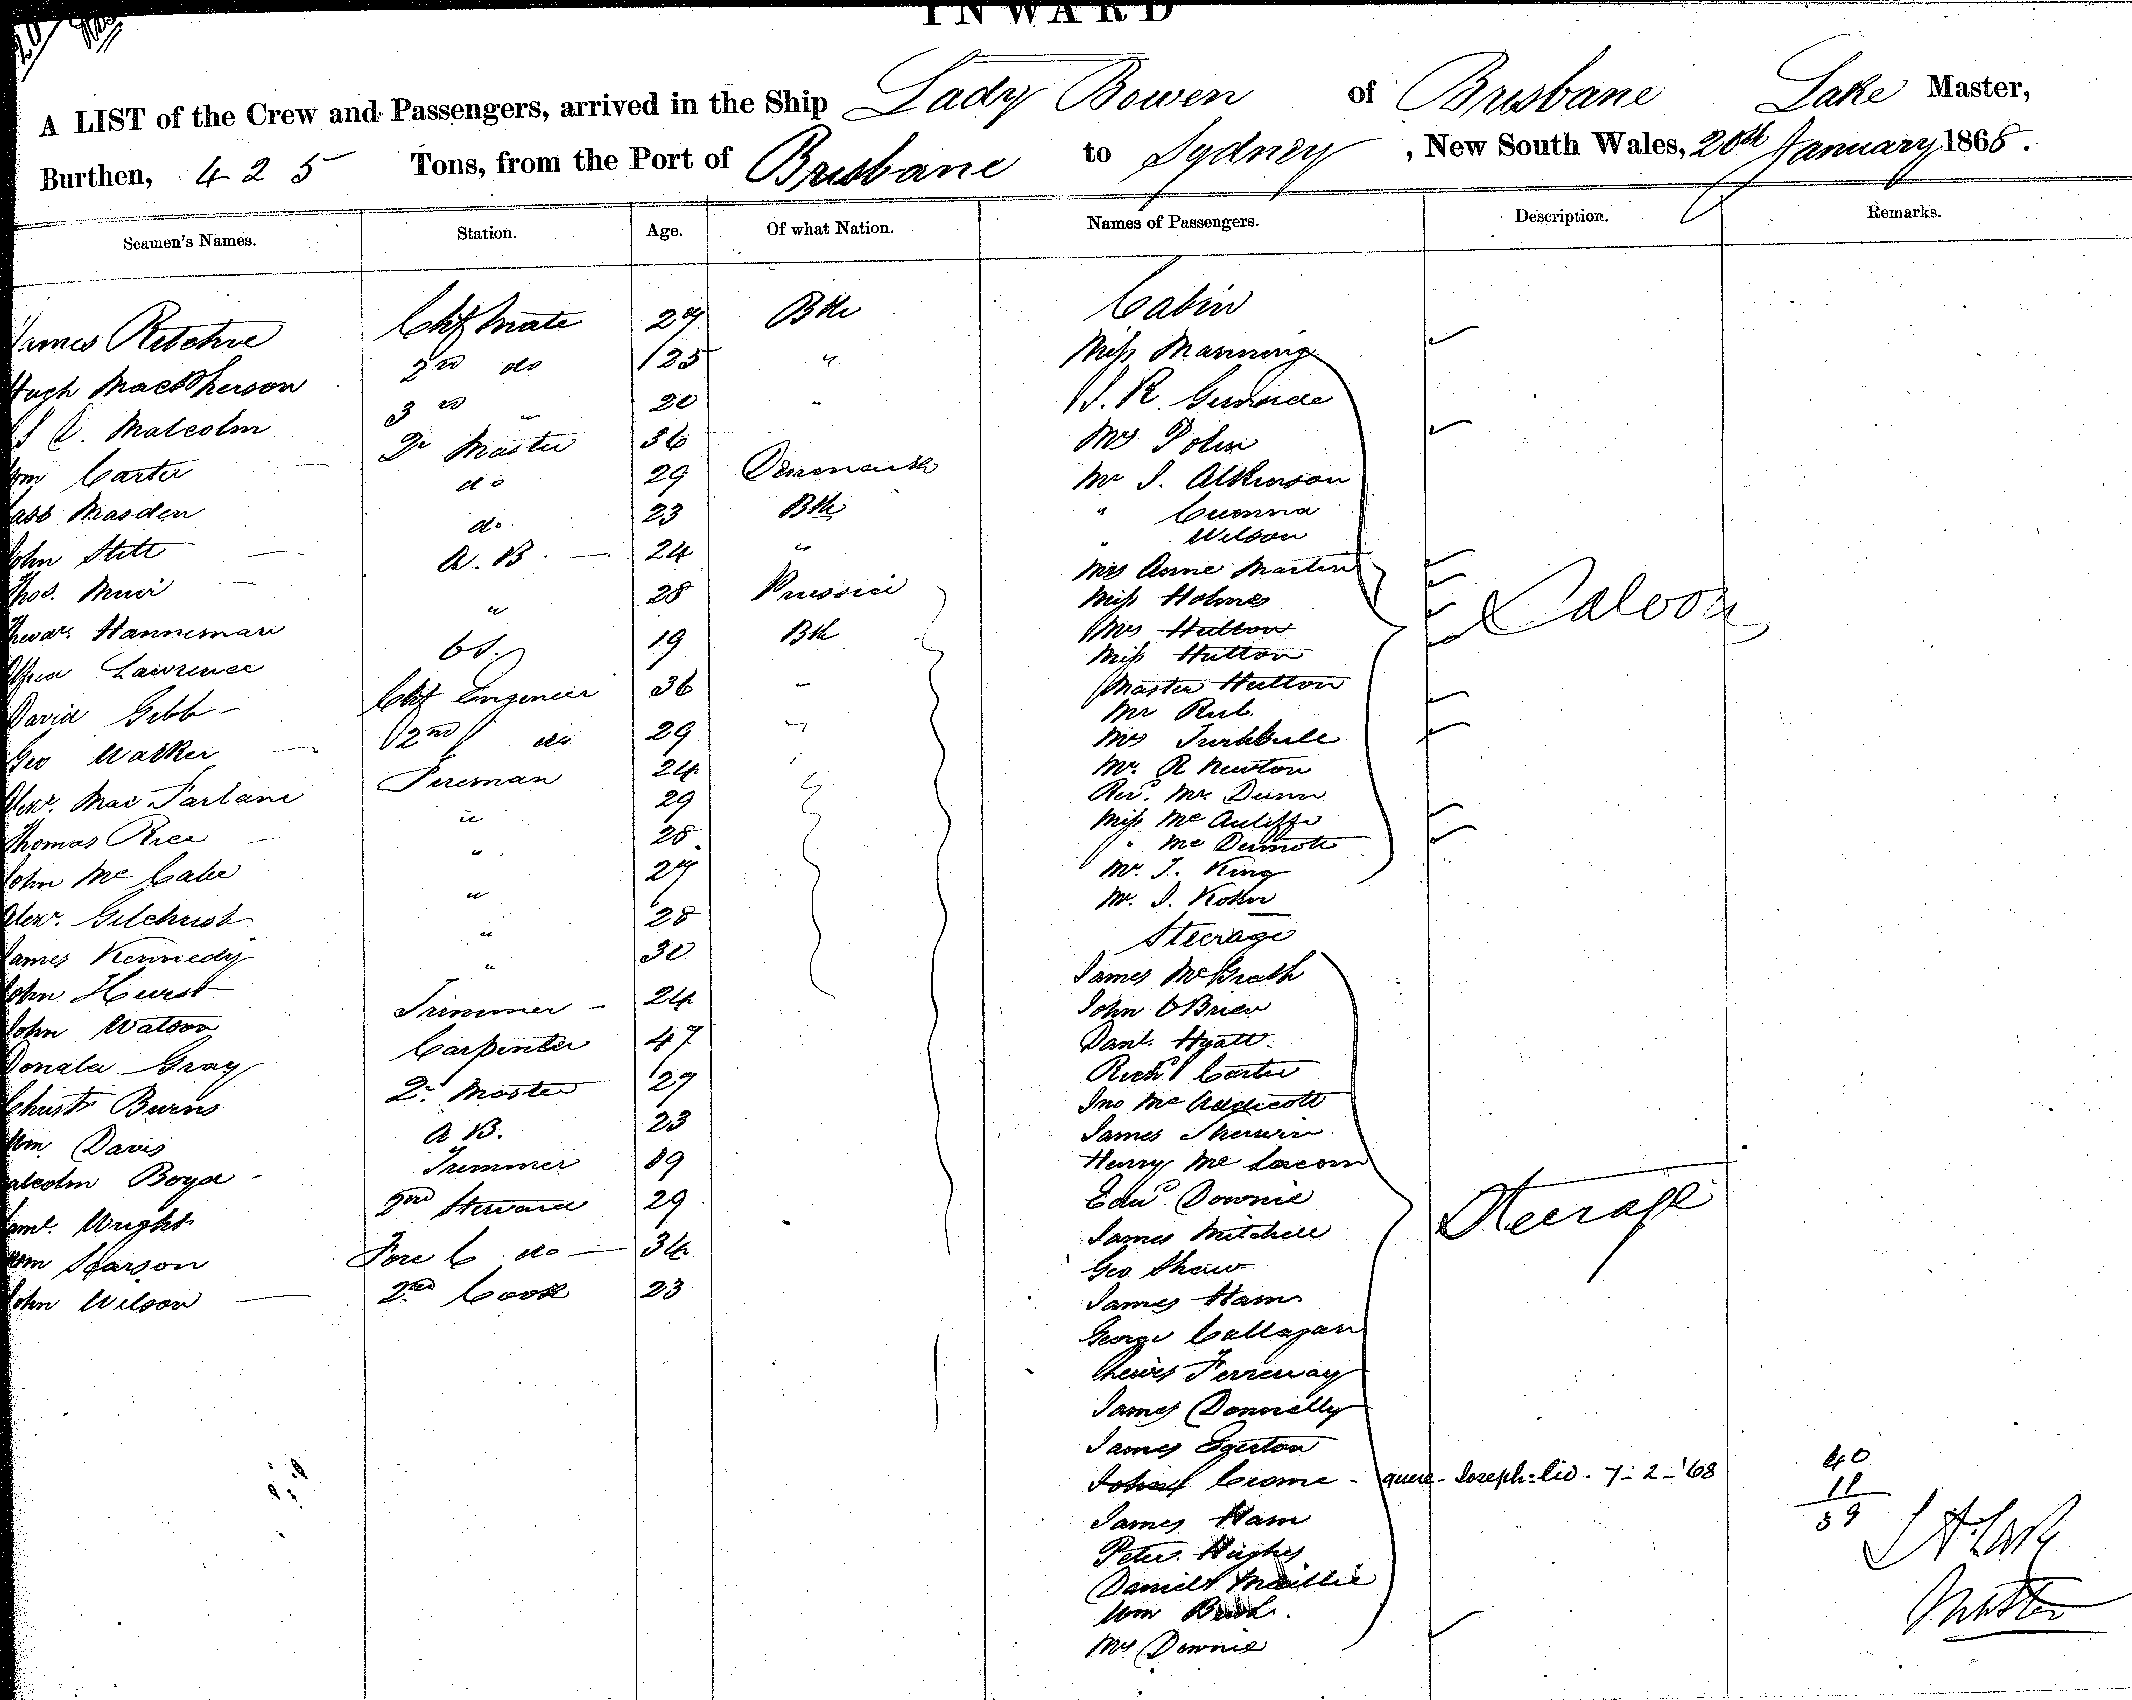 INWARD
A LIST of the Crew and Passengers, arrived in the Ship Lady Bowen of Brisbane Lake Master,
Burthen, 425 Tons, from the Port of Brisbane to Sydney, New South Wales, 20th January 1868.
Seamen's Names. Station. Age. Of what Nation. Names of Passengers. Description. Remarks.
James Ritchie Chf Mate 27 Bth
Hugh MacPherson 2nd do 25 "
Malcolm 3rd " 20 "
Wm Carter Qr Master 36
Masden do 29 Denmark
John Stitt do. 23 Bth
Thos. Muir A.B. 24 "
Hanneman " 28 Prussia
Lawrence OS. 19 Bth
David Gibb Chf Engineer 36 "
Geo Walker 2nd do 29 "
Alexr. MacFarlane Fireman 24
Thomas Rice " 29
John McCabe " 28
Alexr. Gilchrist " 27
James Kennedy " 28
John Hurst " 30
John Watson Trimmer 24
Donald Gray Carpenter 47
Christr Burns Qr Master 27
Wm Davis A B. 23
Malcolm Boyd Trimmer 19
Saml. Wright 2nd Steward 29
Wm Pearson Fore C do 34
John Wilson 2nd Cook 23
Cabin
Miss Manning
J. R.
Mrs Polin
Mr J. Atkinson
"
" Wilson
Mrs Anne Martin
Miss Holmes
Mrs Hutton
Miss Hutton
Master Hutton
Mr
Mrs Turnbull
Mr. R Newton
Revd. Mr Dunn
Miss McAuliffe
" McDermott
Mr. J. King
Mr. J. Kohn
Saloon
Steerage
James McGrath
John O'Brien
Danl. Hyatt
Richd Carter
Jno McAddicott
James Sherwin
Henry Mc
Edwd Downie
James Mitchell
Geo Shaw
James Ham
George Callagan
Lewis
James Donnelly
James Egerton
John Crome - quere - Joseph: lid. 7-2-'68
James Ham
Peter Hughes
Daniel
Wm
Mrs Downie
Steerage
40
19
59
J A Lake
Master